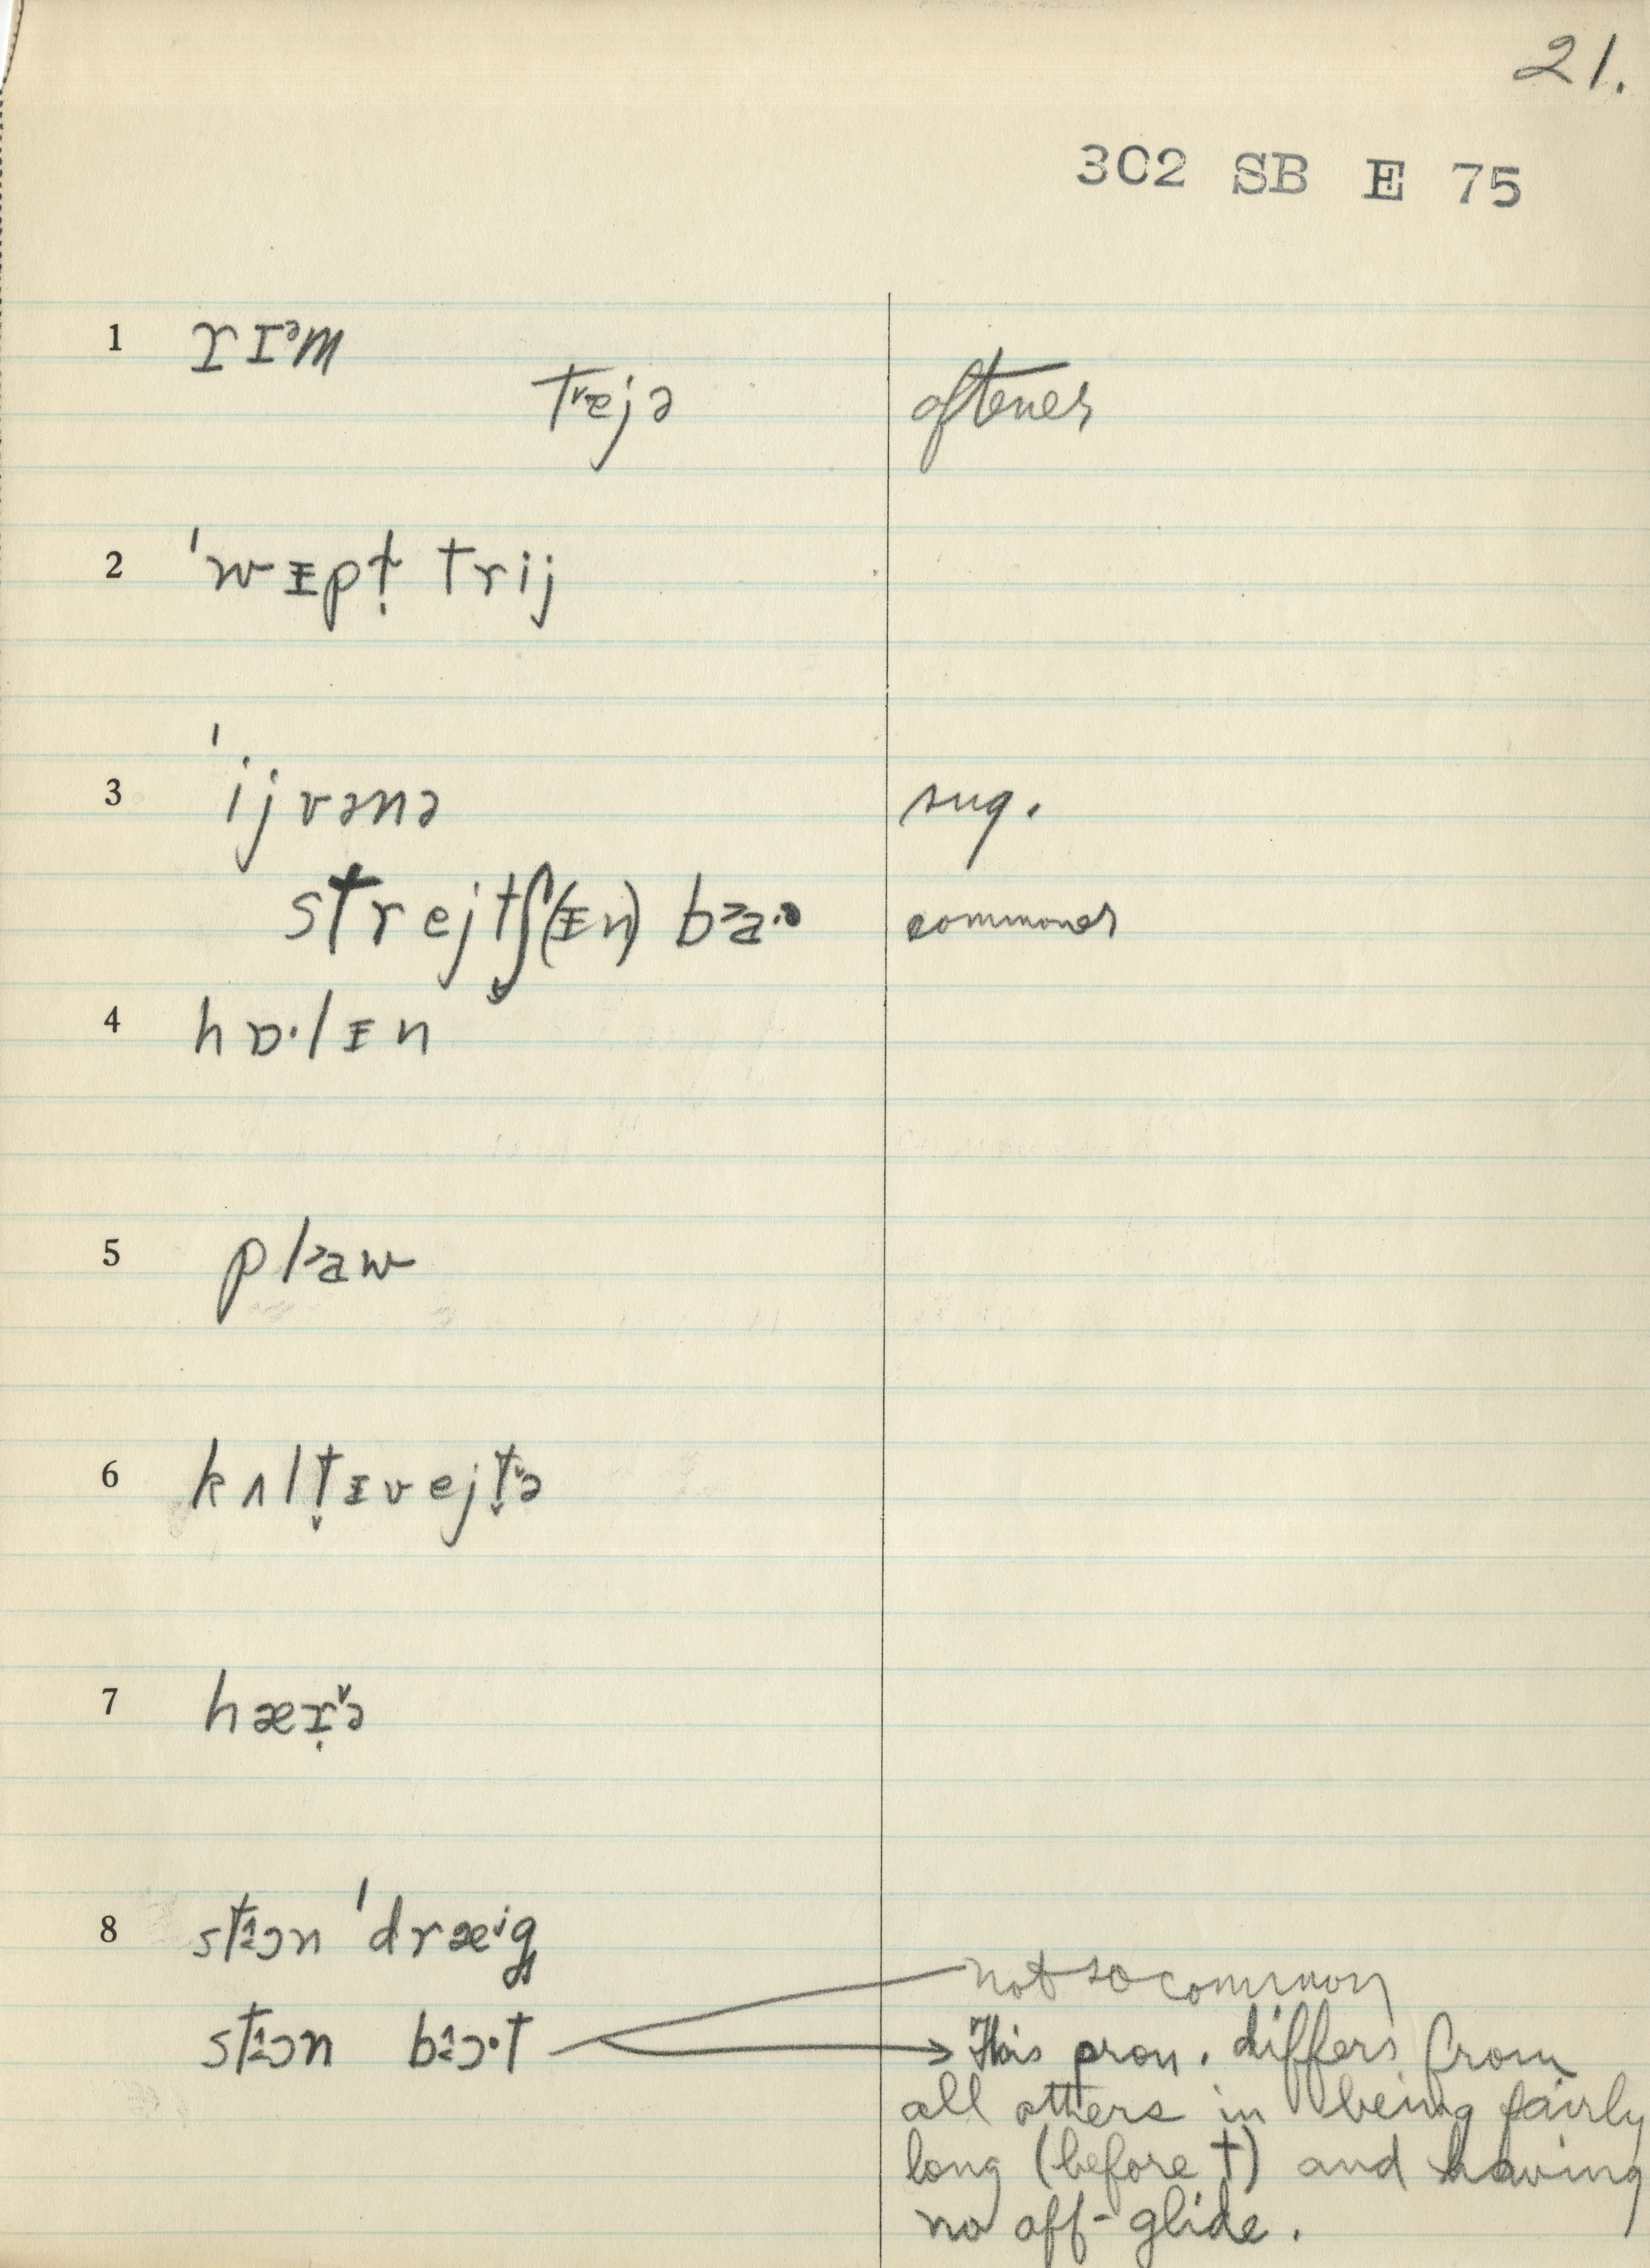 21.
302 SB E 75
1 rɪᵊm
trejə oftener
2 ˈwɪpt̩ trij
3 ˈijvənə sug.
strejtʃ(ɪn) ba commoner
4 hɒ·lɪn
5 plaw
6 kʌltɪvejtə
7 hærə
8 stɔn ˈdræⁱg
not so common
stɔn bɔ·t → This pron. differs from
all others in being fairly
long (before t) and having
no off-glide.